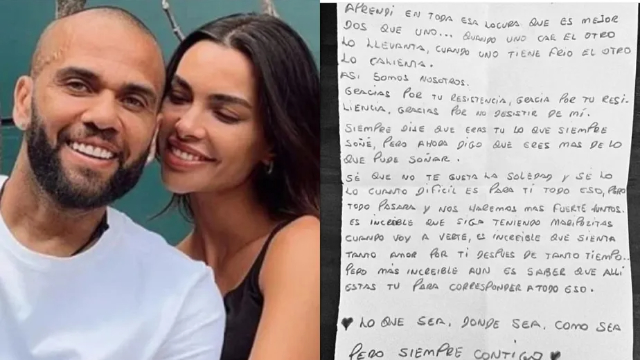 APRENDI EN TODA ESA LOCURA QUE ES MEJOR
DOS QUE UNO... QUANDO UNO CAE EL OTRO
LO LLEVANTA, CUANDO UNO TIENE FRIO EL OTRO
LO CALIENTA.
ASI SOMOS NOSOTROS.
GRACIAS POR TU RESISTENCIA, GRACIA POR TU RESI-
LIENCIA, GRACIAS POR NO DESISTIR DE MI.
SIEMPRE DIJE QUE ERAS TU LO QUE SIEMPRE
SOÑE, PERO AHORA DIGO QUE ERES MAS DE LO
QUE PUDE SOÑAR.
SÉ QUE NO TE GUSTA LA SOLEDAD Y SÉ LO
LO CUANTO DIFÍCIL ES PARA TI TODO ESO, PERO
TODO PASARA Y NOS HAREMOS MAS FUERTE JUNTOS.
ES INCREIBLE QUE SIGA TENIENDO MARIPOZITAS
CUANDO VOY A VERTE, ES INCREIBLE QUE SIENTA
TANTO AMOR POR TI DESPUES DE TANTO TIEMPO..
PERO MÁS INCREIBLE AUN ES SABER QUE ALLI
ESTAS TU PARA CORRESPONDER A TODO ESO.
♥ LO QUE SEA, DONDE SEA, COMO SEA
PERO SIEMPRE CONTIGO ♥